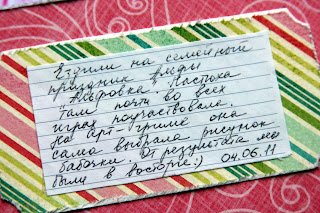 Ездили на семейный
праздник в меды
Альфовка. Настюха
там почти во всех
играх поучаствовала.
На арт-гриме она
сама выбрала рисунок
бабочки. От результата мы
были в восторге:) 04.06.11